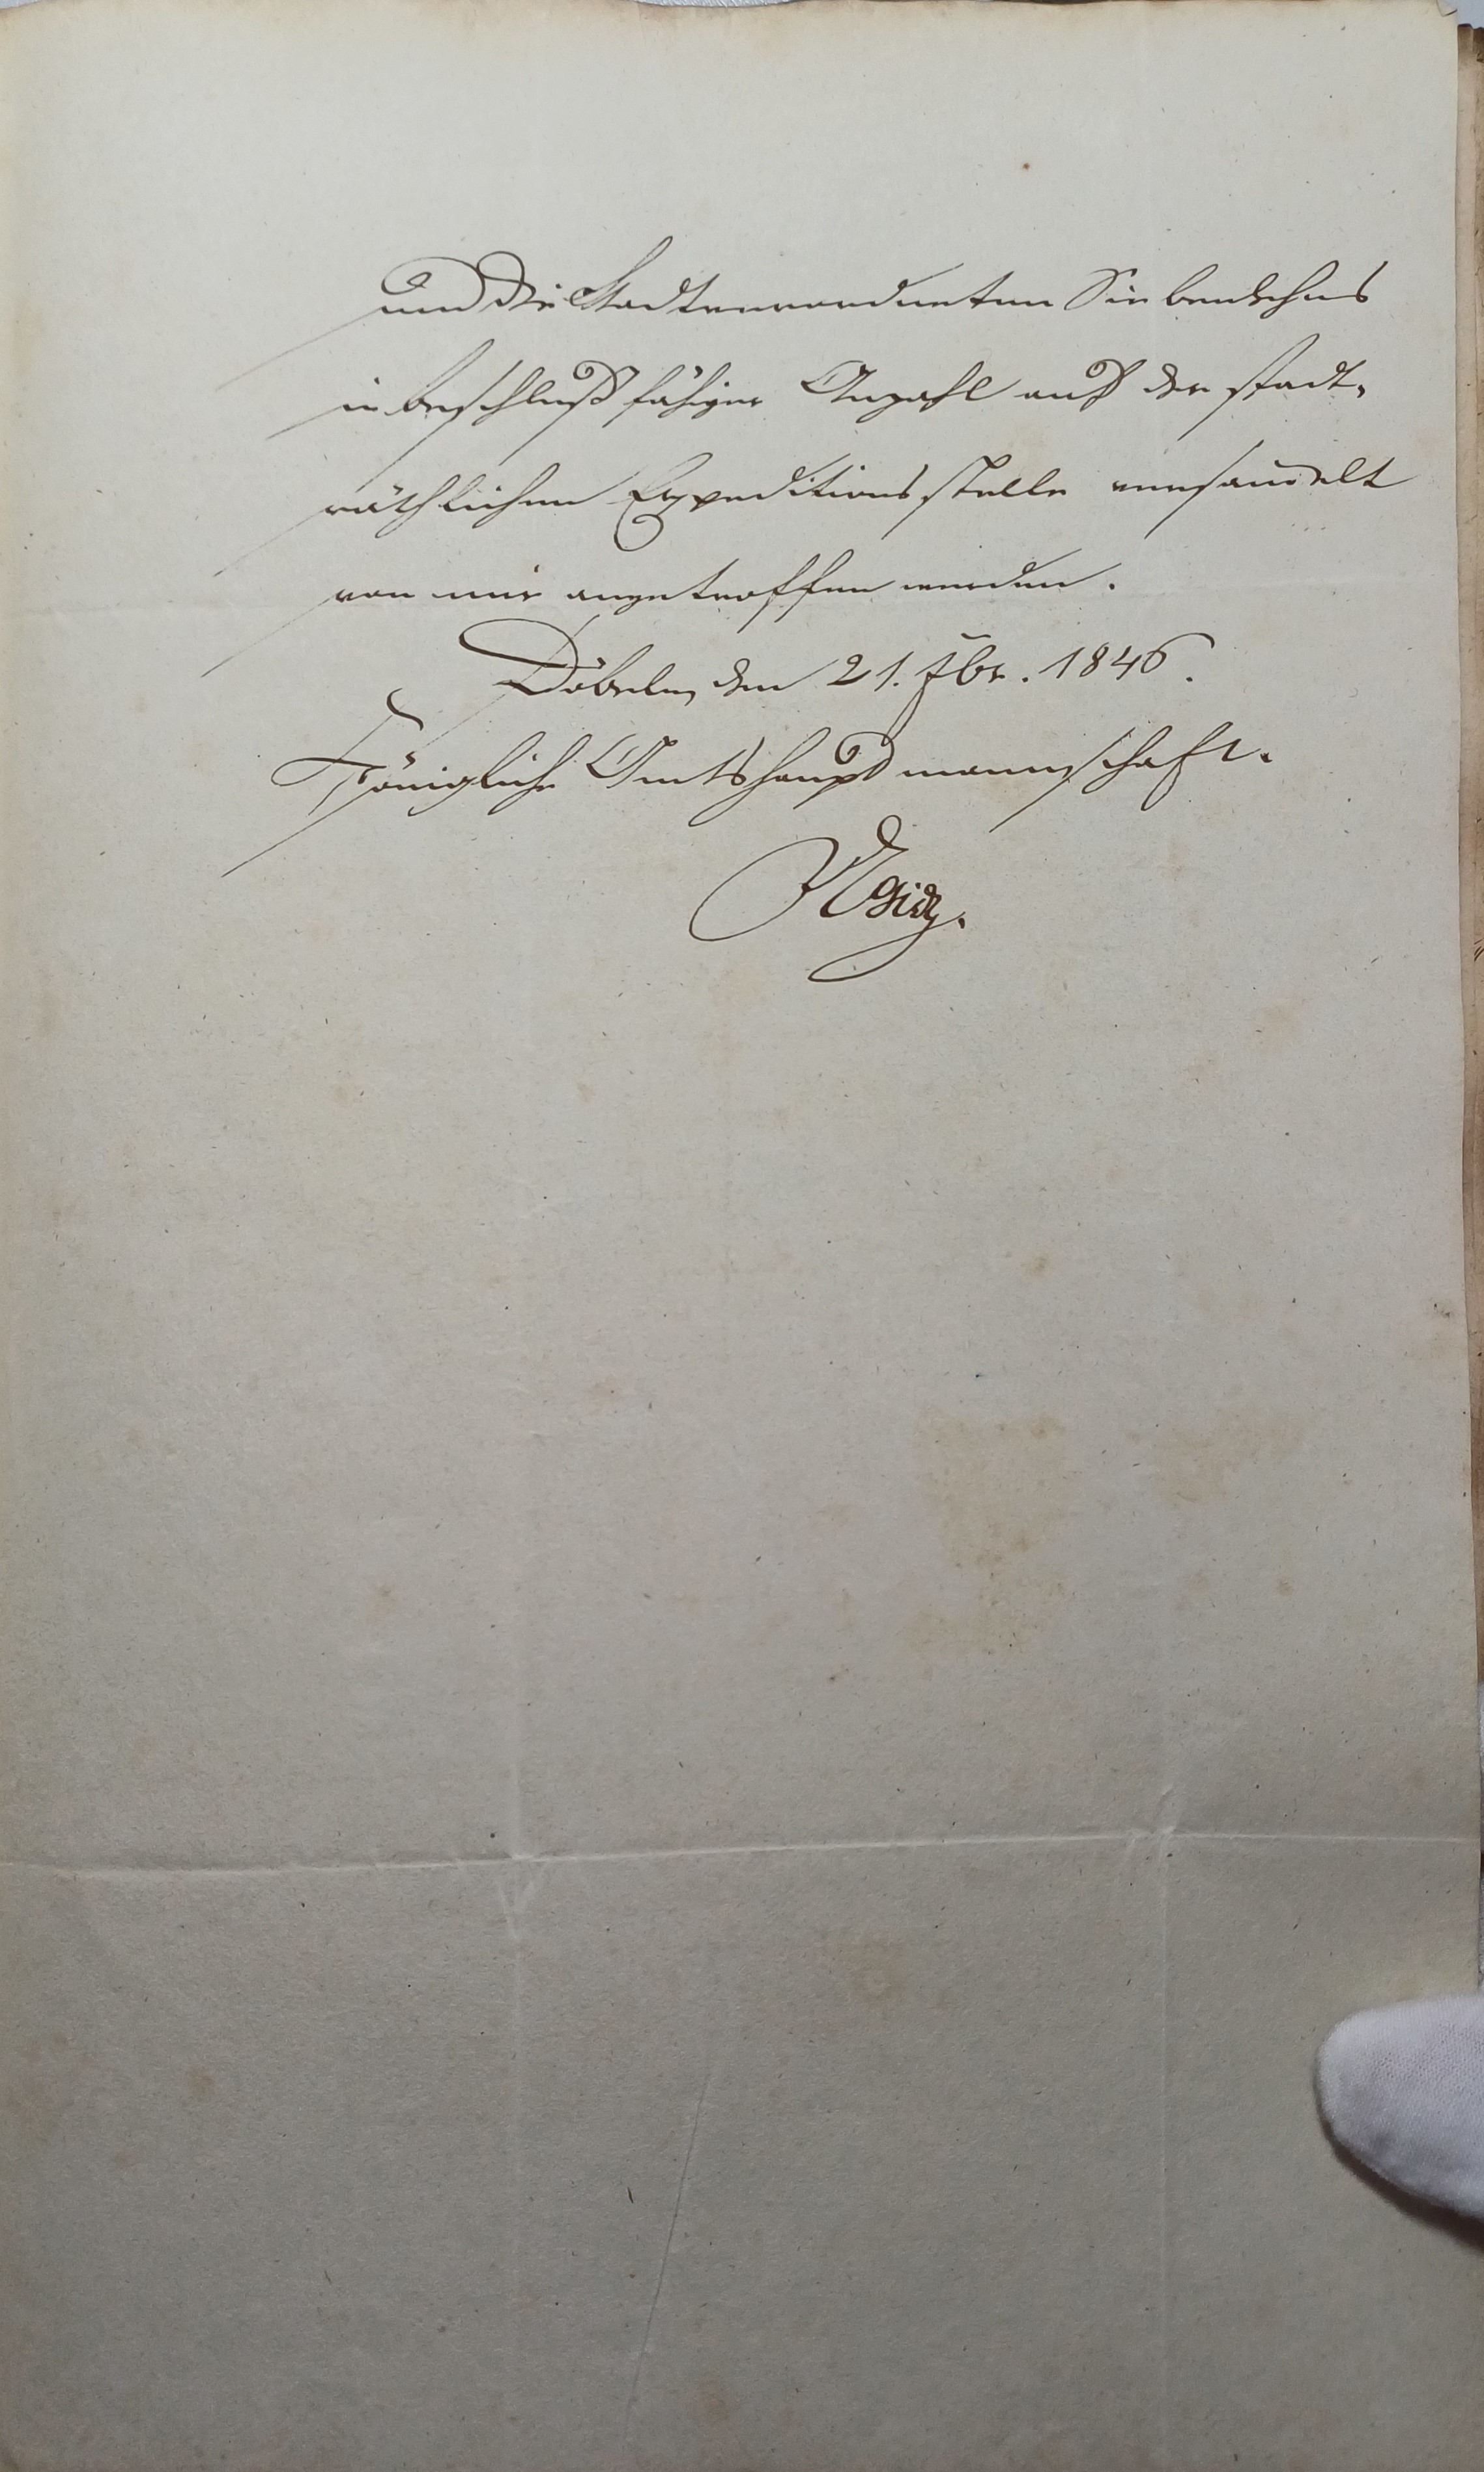 und die Stadtverordneten Siebenlehns
in beschlußfähiger Anzahl auf der stadt-
räthlichen Expeditionsstelle versam̅elt
von mir angetroffen werden.
Döbeln, den 21. Fbr. 1846.
Königliche Amtshauptmannschaft.